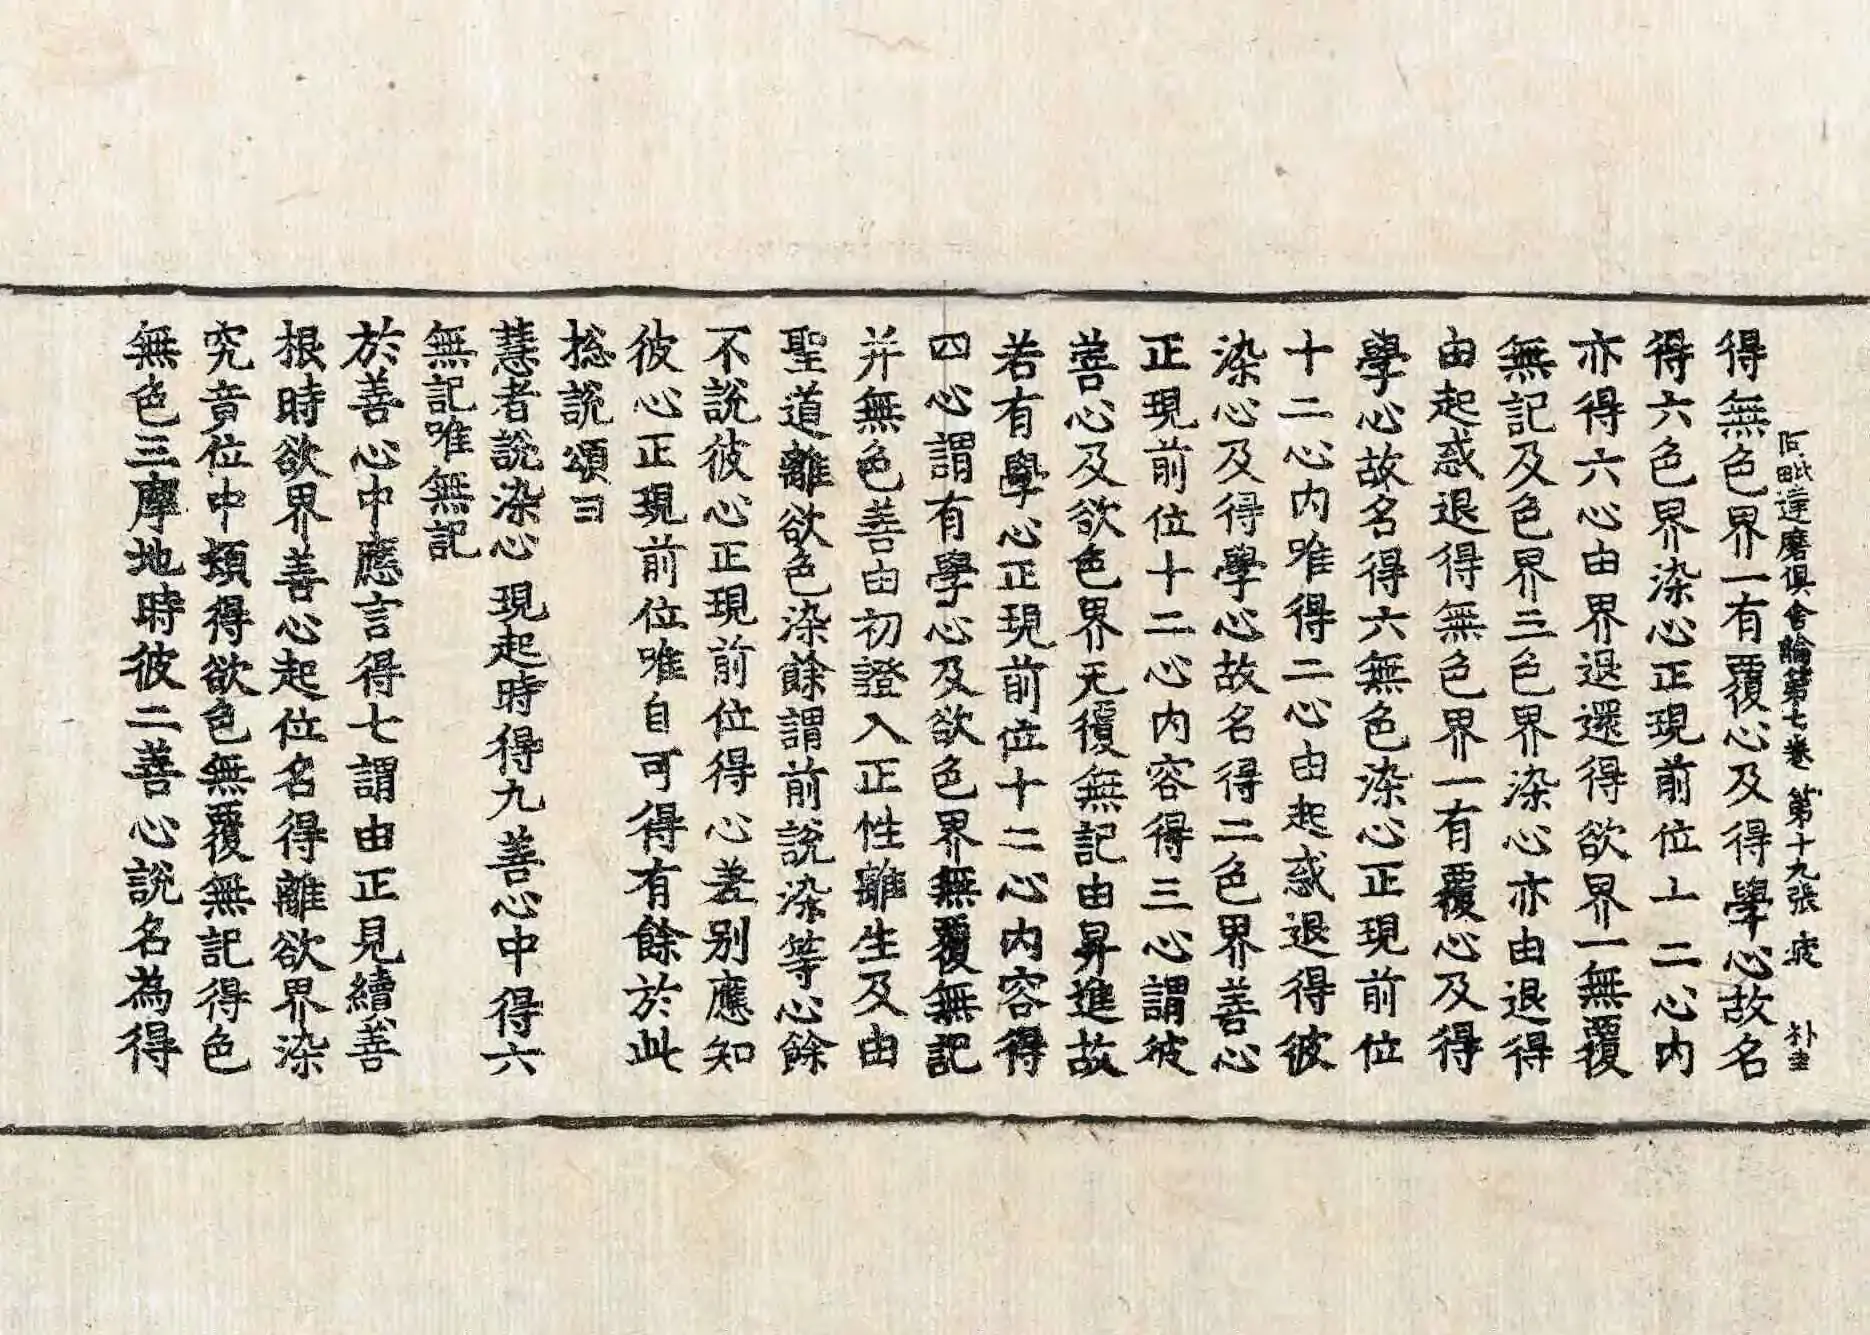 阿毗達磨俱舍論第七卷 第十九張 疲 朴圭
得無色界一有覆心及得學心故名
得六色界染心正現前位十二心內
亦得六心由界退還得欲界一無覆
無記及色界三色界染心亦由退得
由起惑退得無色界一有覆心及得
學心故名得六無色染心正現前位
十二心內唯得二心由起惑退得彼
染心及得學心故名得二色界善心
正現前位十二心內容得三心謂彼
善心及欲色界无覆無記由昇進故
若有學心正現前位十二心內容得
四心謂有學心及欲色界無覆無記
并無色善由初證入正性離生及由
聖道離欲色染餘謂前說染等心餘
不說彼心正現前位得心差別應知
彼心正現前位唯自可得有餘於此
捴說頌曰
慧者說染心 現起時得九 善心中得六
無記唯無記
於善心中應言得七謂由正見續善
根時欲界善心起位名得離欲界染
究竟位中頓得欲色無覆無記得色
無色三摩地時彼二善心說名為得